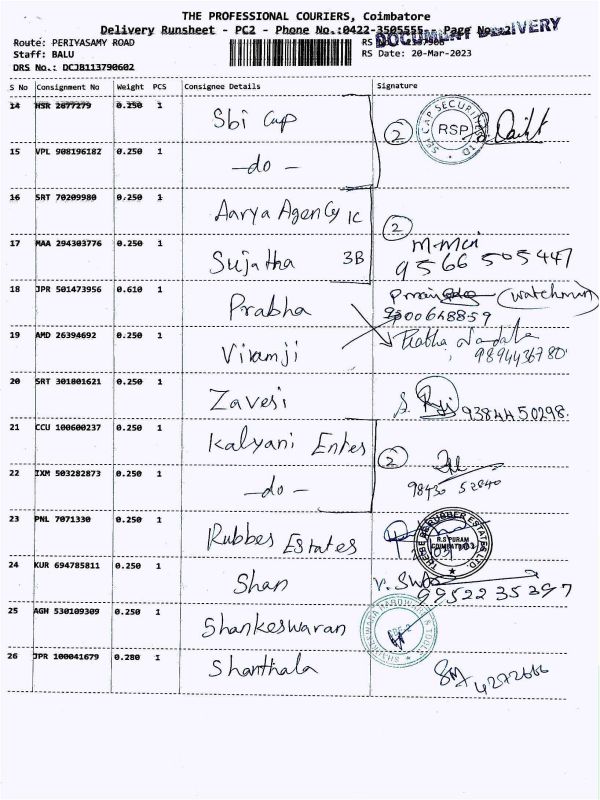 THE PROFESSIONAL COURIERS, Coimbatore
Delivery Runsheet - PC2 - Phone No.:0422-3505555 Page No.:2
DOCUMENT DELIVERY
Route: PERIYASAMY ROAD
Staff: BALU
RS Date: 20-Mar-2023
DRS No.: DCJB113790602
S No Consignment No Weight PCS Consignee Details Signature
14 HSR 2677279 0.250 1 Sbi Cap 2 SBI CAP SECURITIES LTD RSP
15 VPL 908196182 0.250 1 -do-
16 SRT 70209980 0.250 1 Aarya Agency 1C 2
17 MAA 294303776 0.250 1 Sujatha 3B 9566 505447
18 JPR 501473956 0.610 1 Prabha (watchman)
19 AMD 26394692 0.250 1 Viramji 9894436780
20 SRT 301801621 0.250 1 Zavesi 93844 50298.
21 CCU 100600237 0.250 1 Kalyani Entes 2
22 IXM 503282873 0.250 1 -do- 98430 52840
23 PNL 7071330 0.250 1 Rubbes Estates R.S PURAM COIMBATORE RUBBER ESTATES LTD
24 KUR 694785811 0.250 1 Shan 99522 35397
25 AGM 530109309 0.250 1 Shankeswaran
26 JPR 100041679 0.280 1 Shanthala 4272666